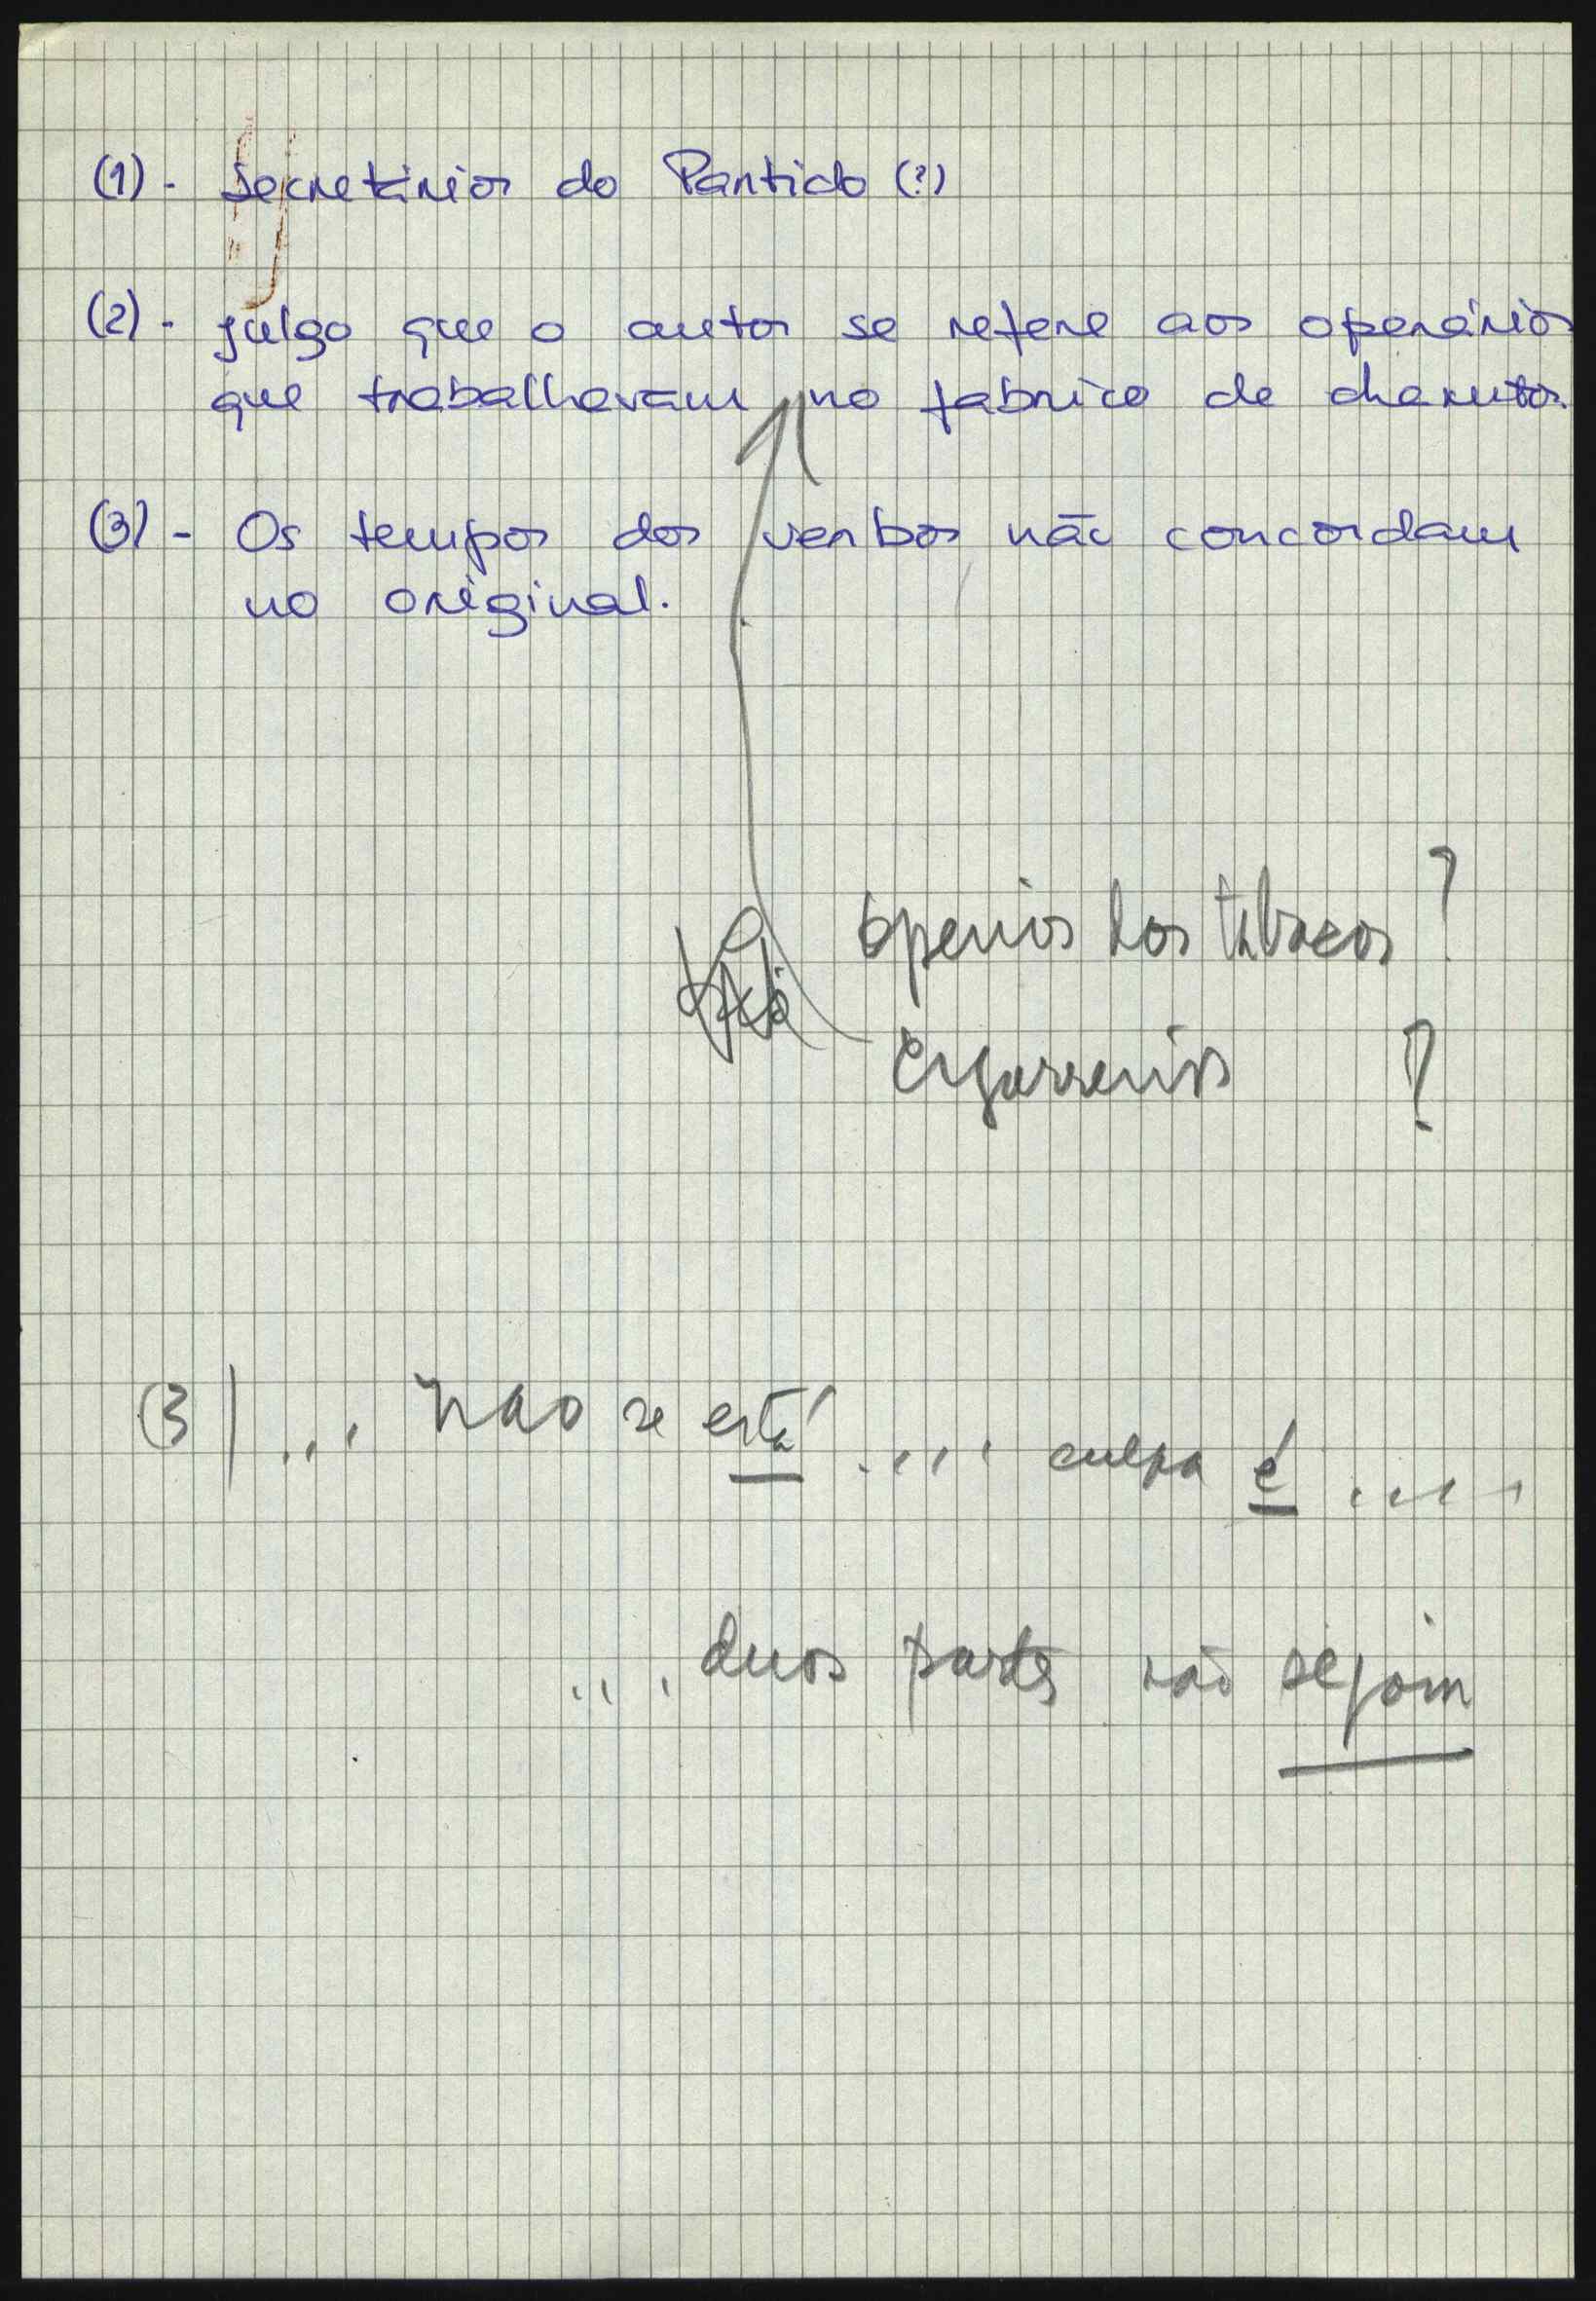 (1) - Secretários do Partido (?)
(2) - julgo que o autor se refere aos operários
que trabalhavam no fabrico de charutos.
(3) - Os tempos dos verbos não concordam
no original.
operários dos tabacos ?
Cigarreiros ?
(3) ... não se está .... culpa é .....
... duas partes não sejam